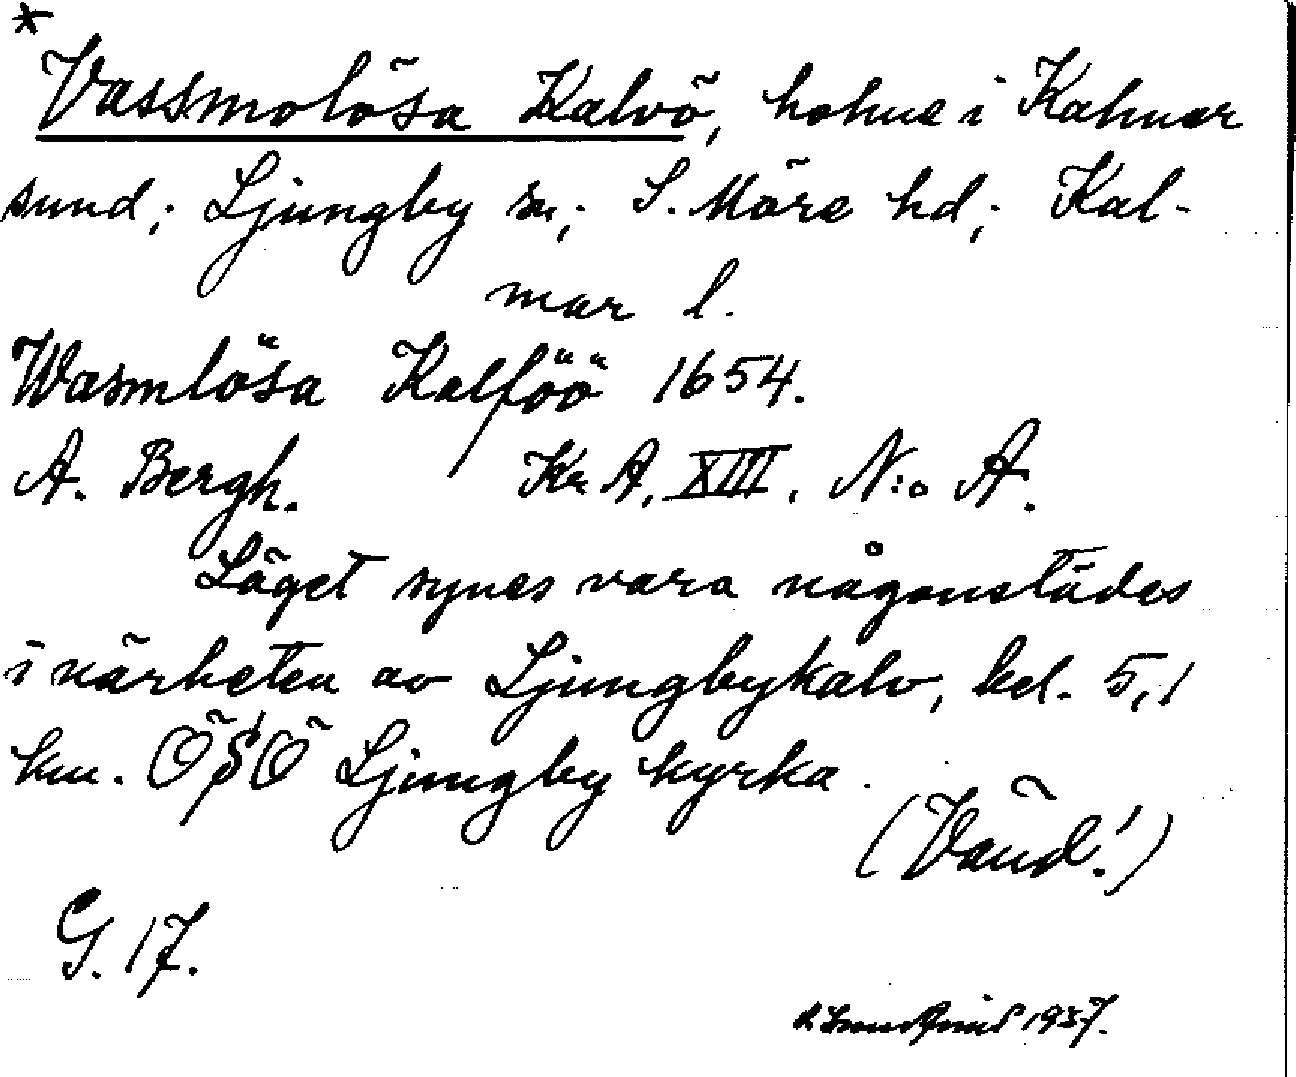 *
Vassmolösa Kalvö, holme i Kalmar
sund; Ljungby sn; S. Möre hd; Kal-
mar l.
Wasmlösa Kalföö 1654.
A. Bergh. Kr A, XIII, N:o A.
Läget synes vara någonstädes
i närheten av Ljungbykalv, bel. 5,1
km. ÖSÖ Ljungby kyrka.
(Vänd!)
G. 17.
1937.